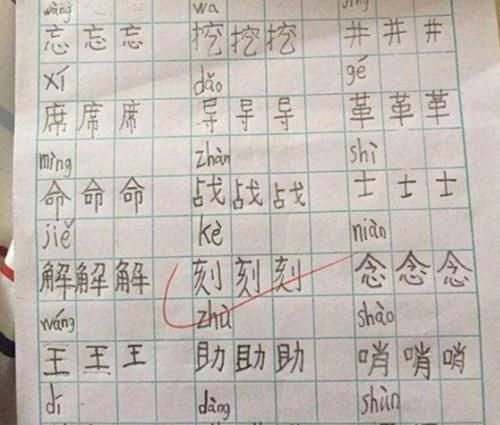 wàng wa jǐng
忘 忘 忘 挖 挖 挖 井 井 井
xí dǎo gé
席 席 席 导 导 导 革 革 革
mìng zhàn shì
命 命 命 战 战 战 士 士 士
jiě kè niàn
解 解 解 刻 刻 刻 念 念 念
wáng zhù shào
王 王 王 助 助 助 哨 哨 哨
dì dàng shùn